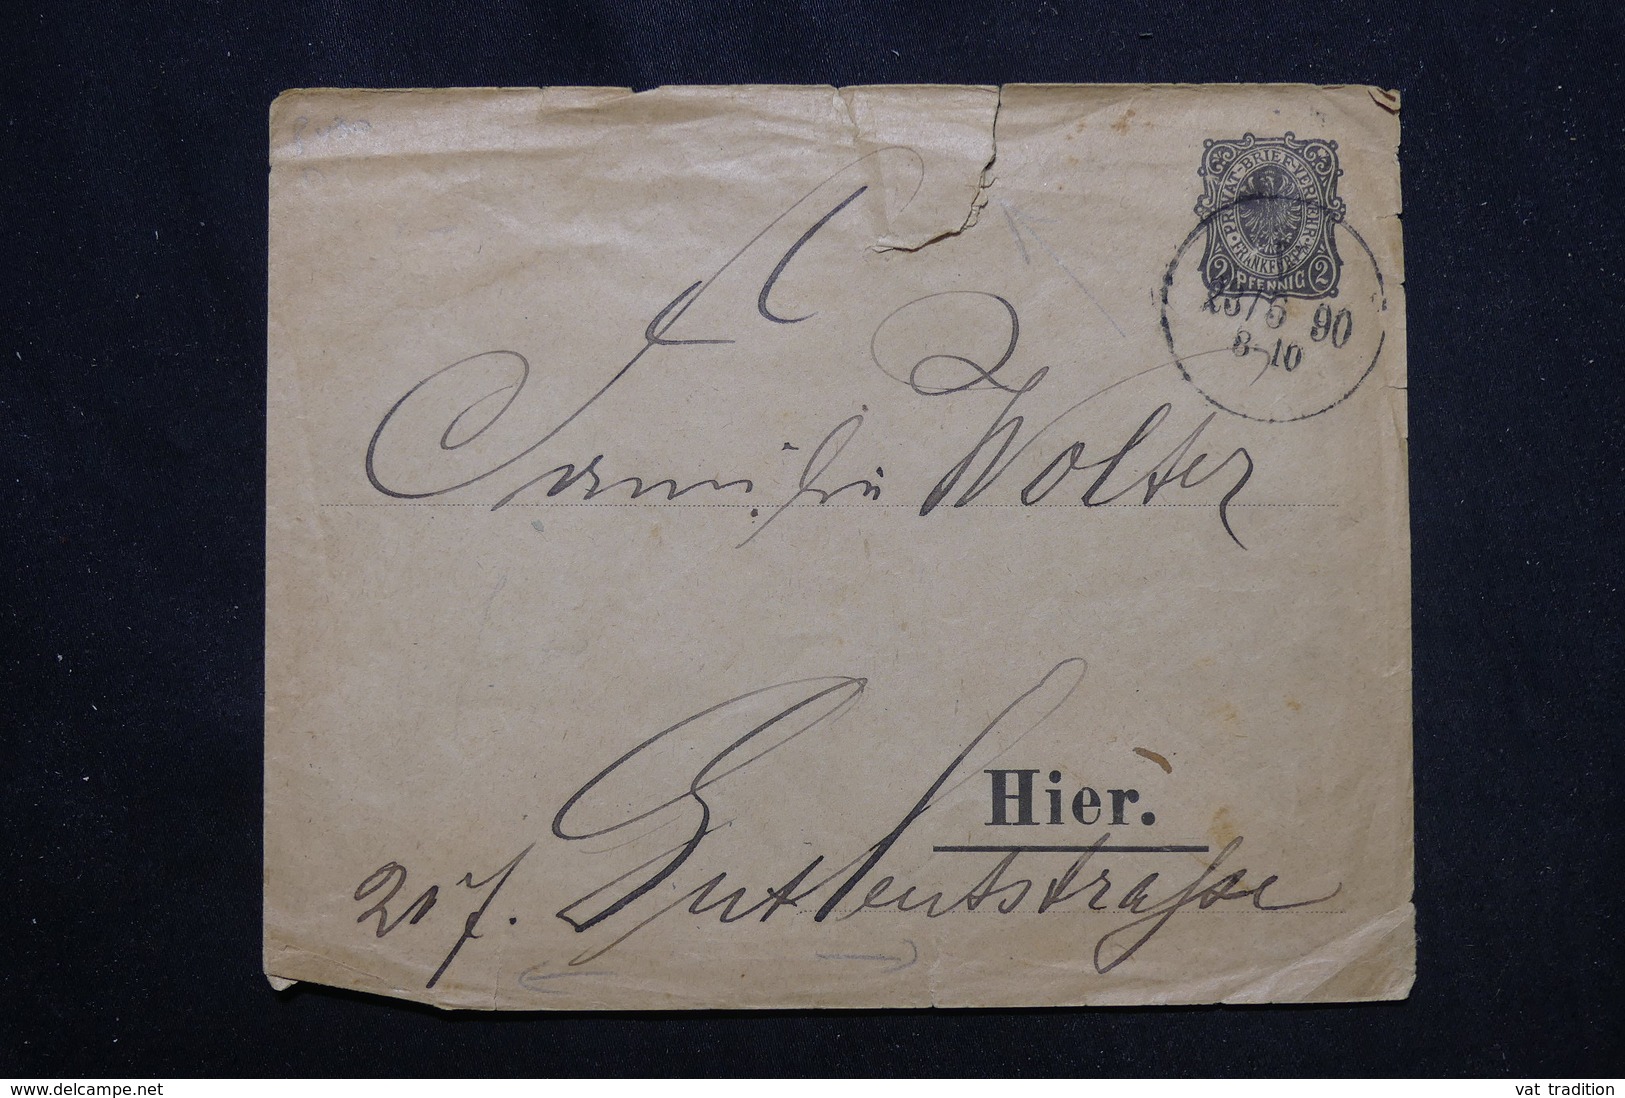 PRIVAT-BRIEF-VERKEHR
FRANKFURT
2 PFENNIG 2
23/6 90
8-10
Familie Wolter
Hier.
Gutleutstrasse
www.delcampe.net
vat tradition